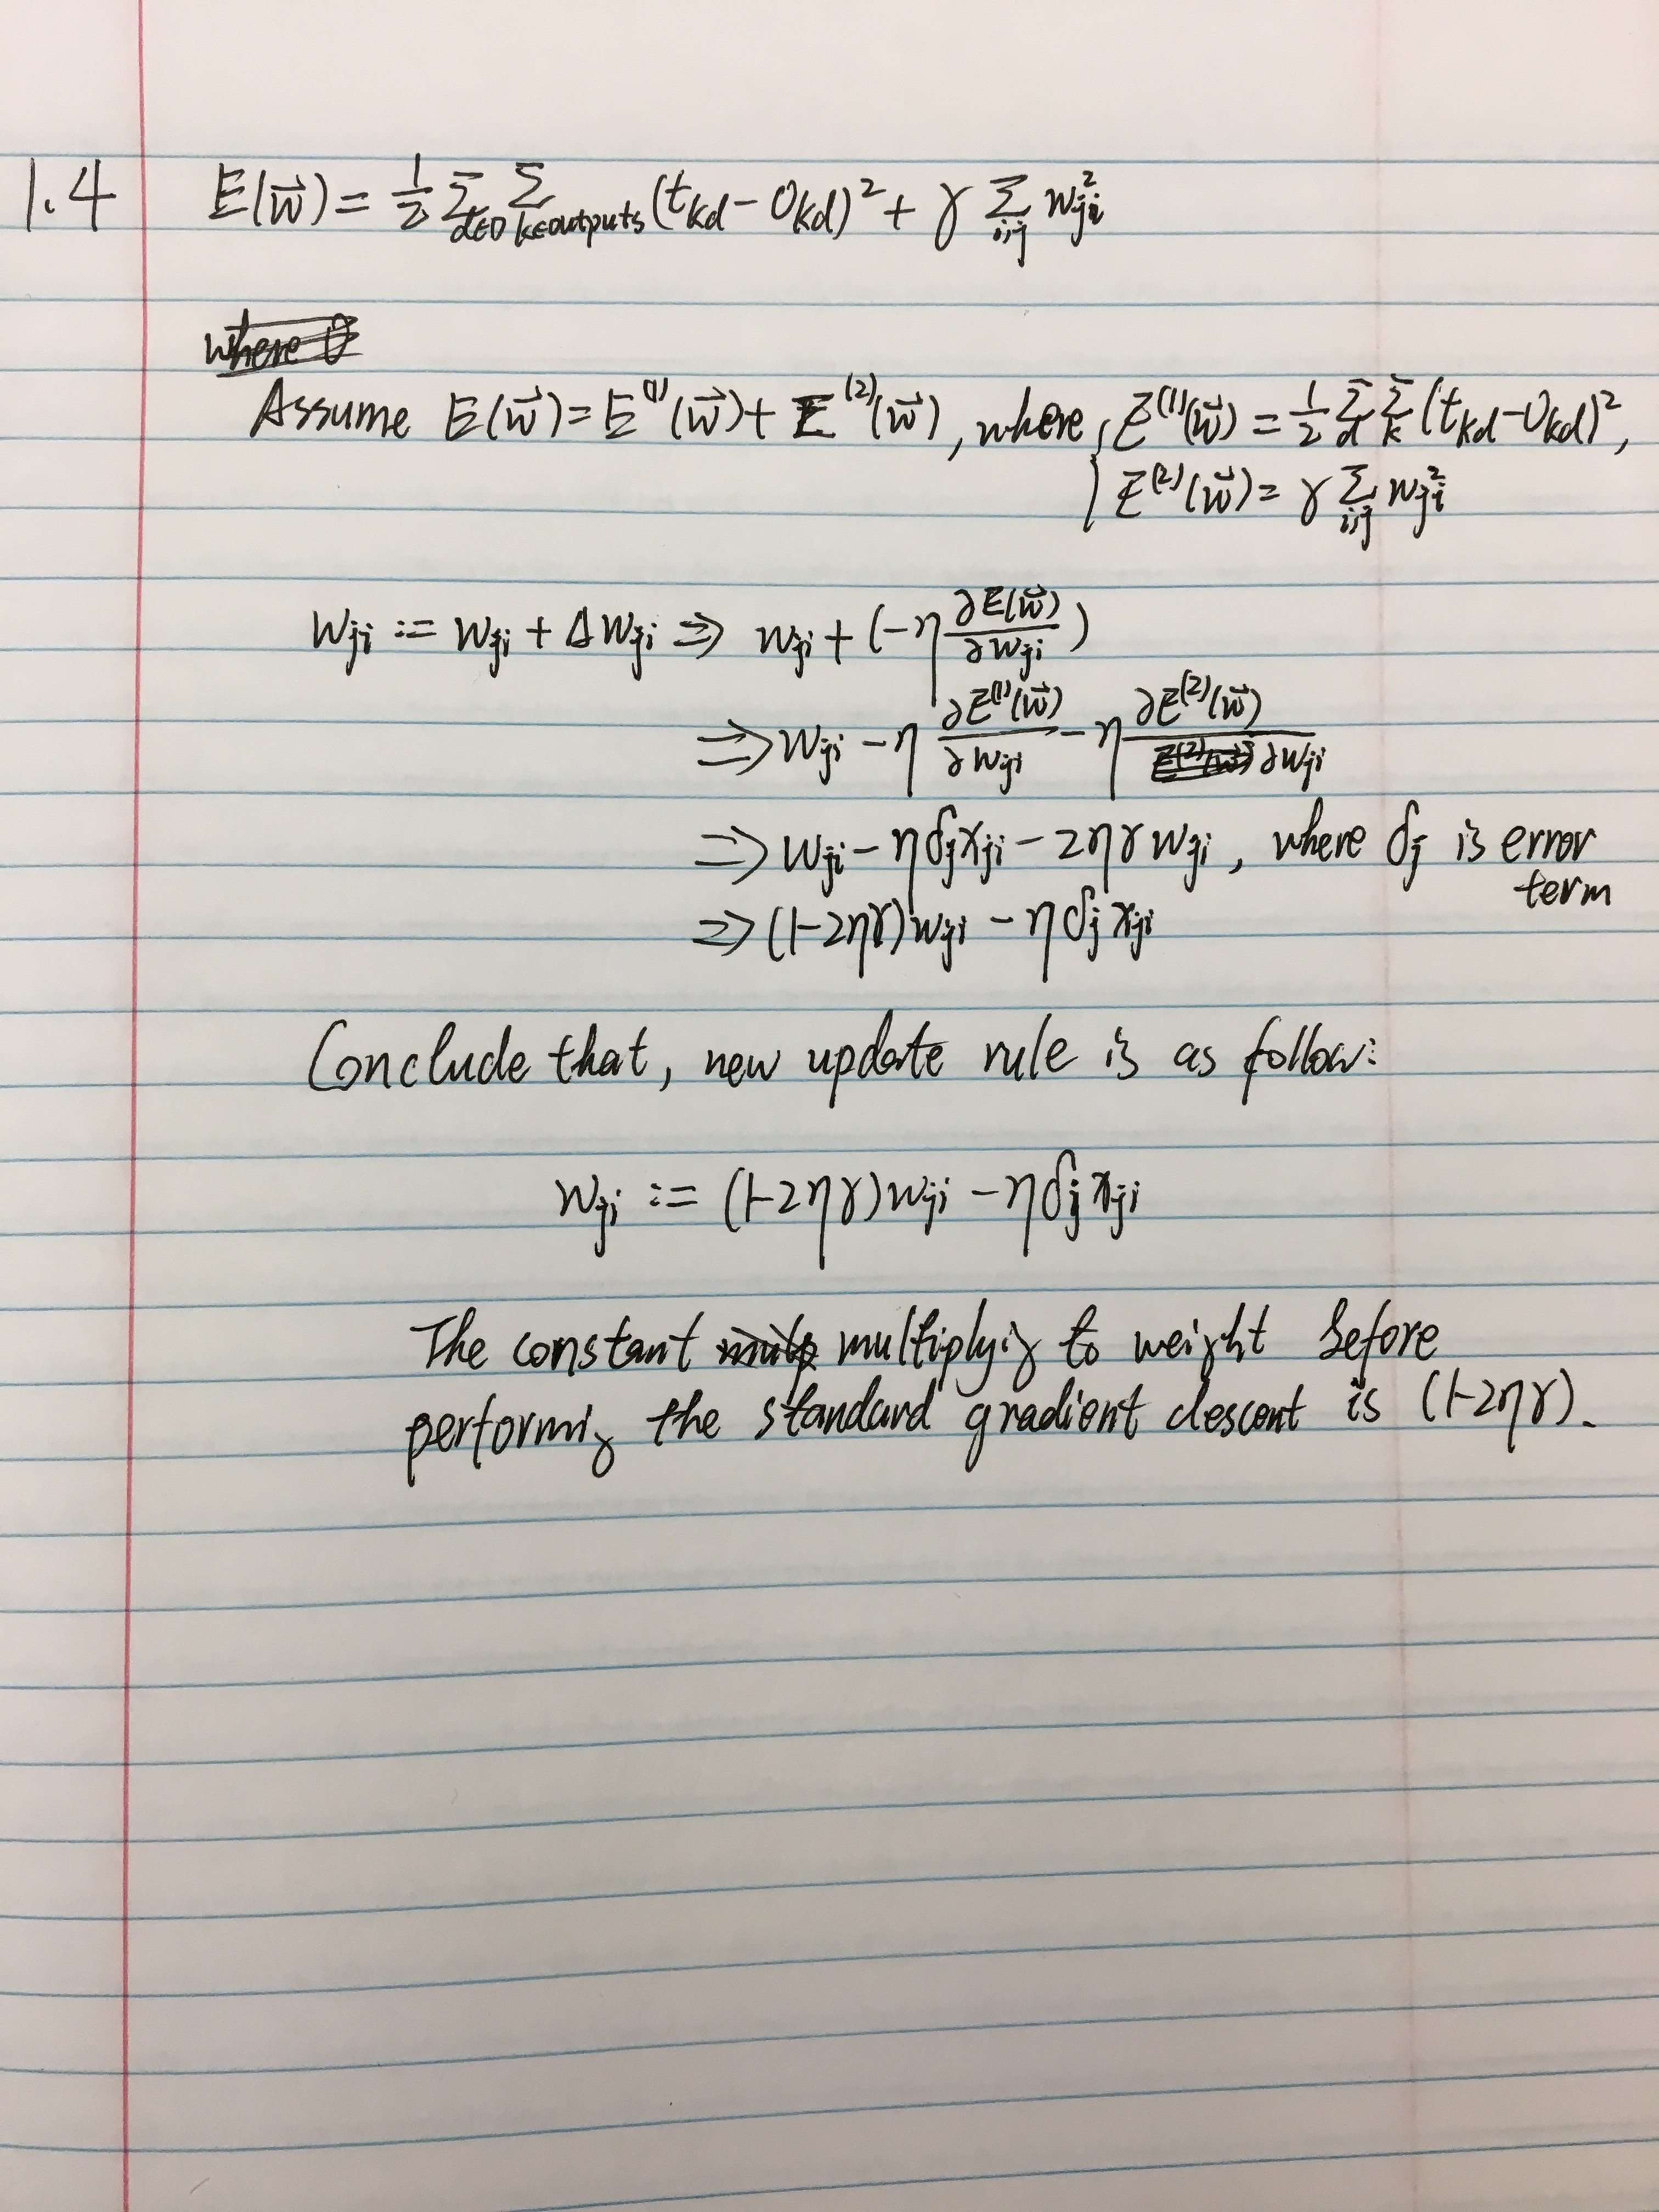 1.4 E(w⃗) = 1/2 Σ_{d∈D} Σ_{k∈outputs} (t_kd − O_kd)² + γ Σ_{i,j} w_ji²
where
Assume E(w⃗) = E⁽¹⁾(w⃗) + E⁽²⁾(w⃗), where { E⁽¹⁾(w⃗) = 1/2 Σ_d Σ_k (t_kd − O_kd)²,
E⁽²⁾(w⃗) = γ Σ_{i,j} w_ji²
w_ji := w_ji + Δw_ji ⇒ w_ji + (−η ∂E(w⃗)/∂w_ji)
⇒ w_ji − η ∂E⁽¹⁾(w⃗)/∂w_ji − η ∂E⁽²⁾(w⃗)/∂w_ji
⇒ w_ji − ηδ_j x_ji − 2ηγ w_ji, where δ_j is error
term
⇒ (1−2ηγ) w_ji − η δ_j x_ji
Conclude that, new update rule is as follow:
w_ji := (1−2ηγ) w_ji − η δ_j x_ji
The constant multiplying to weight before
performing the standard gradient descent is (1−2ηγ).